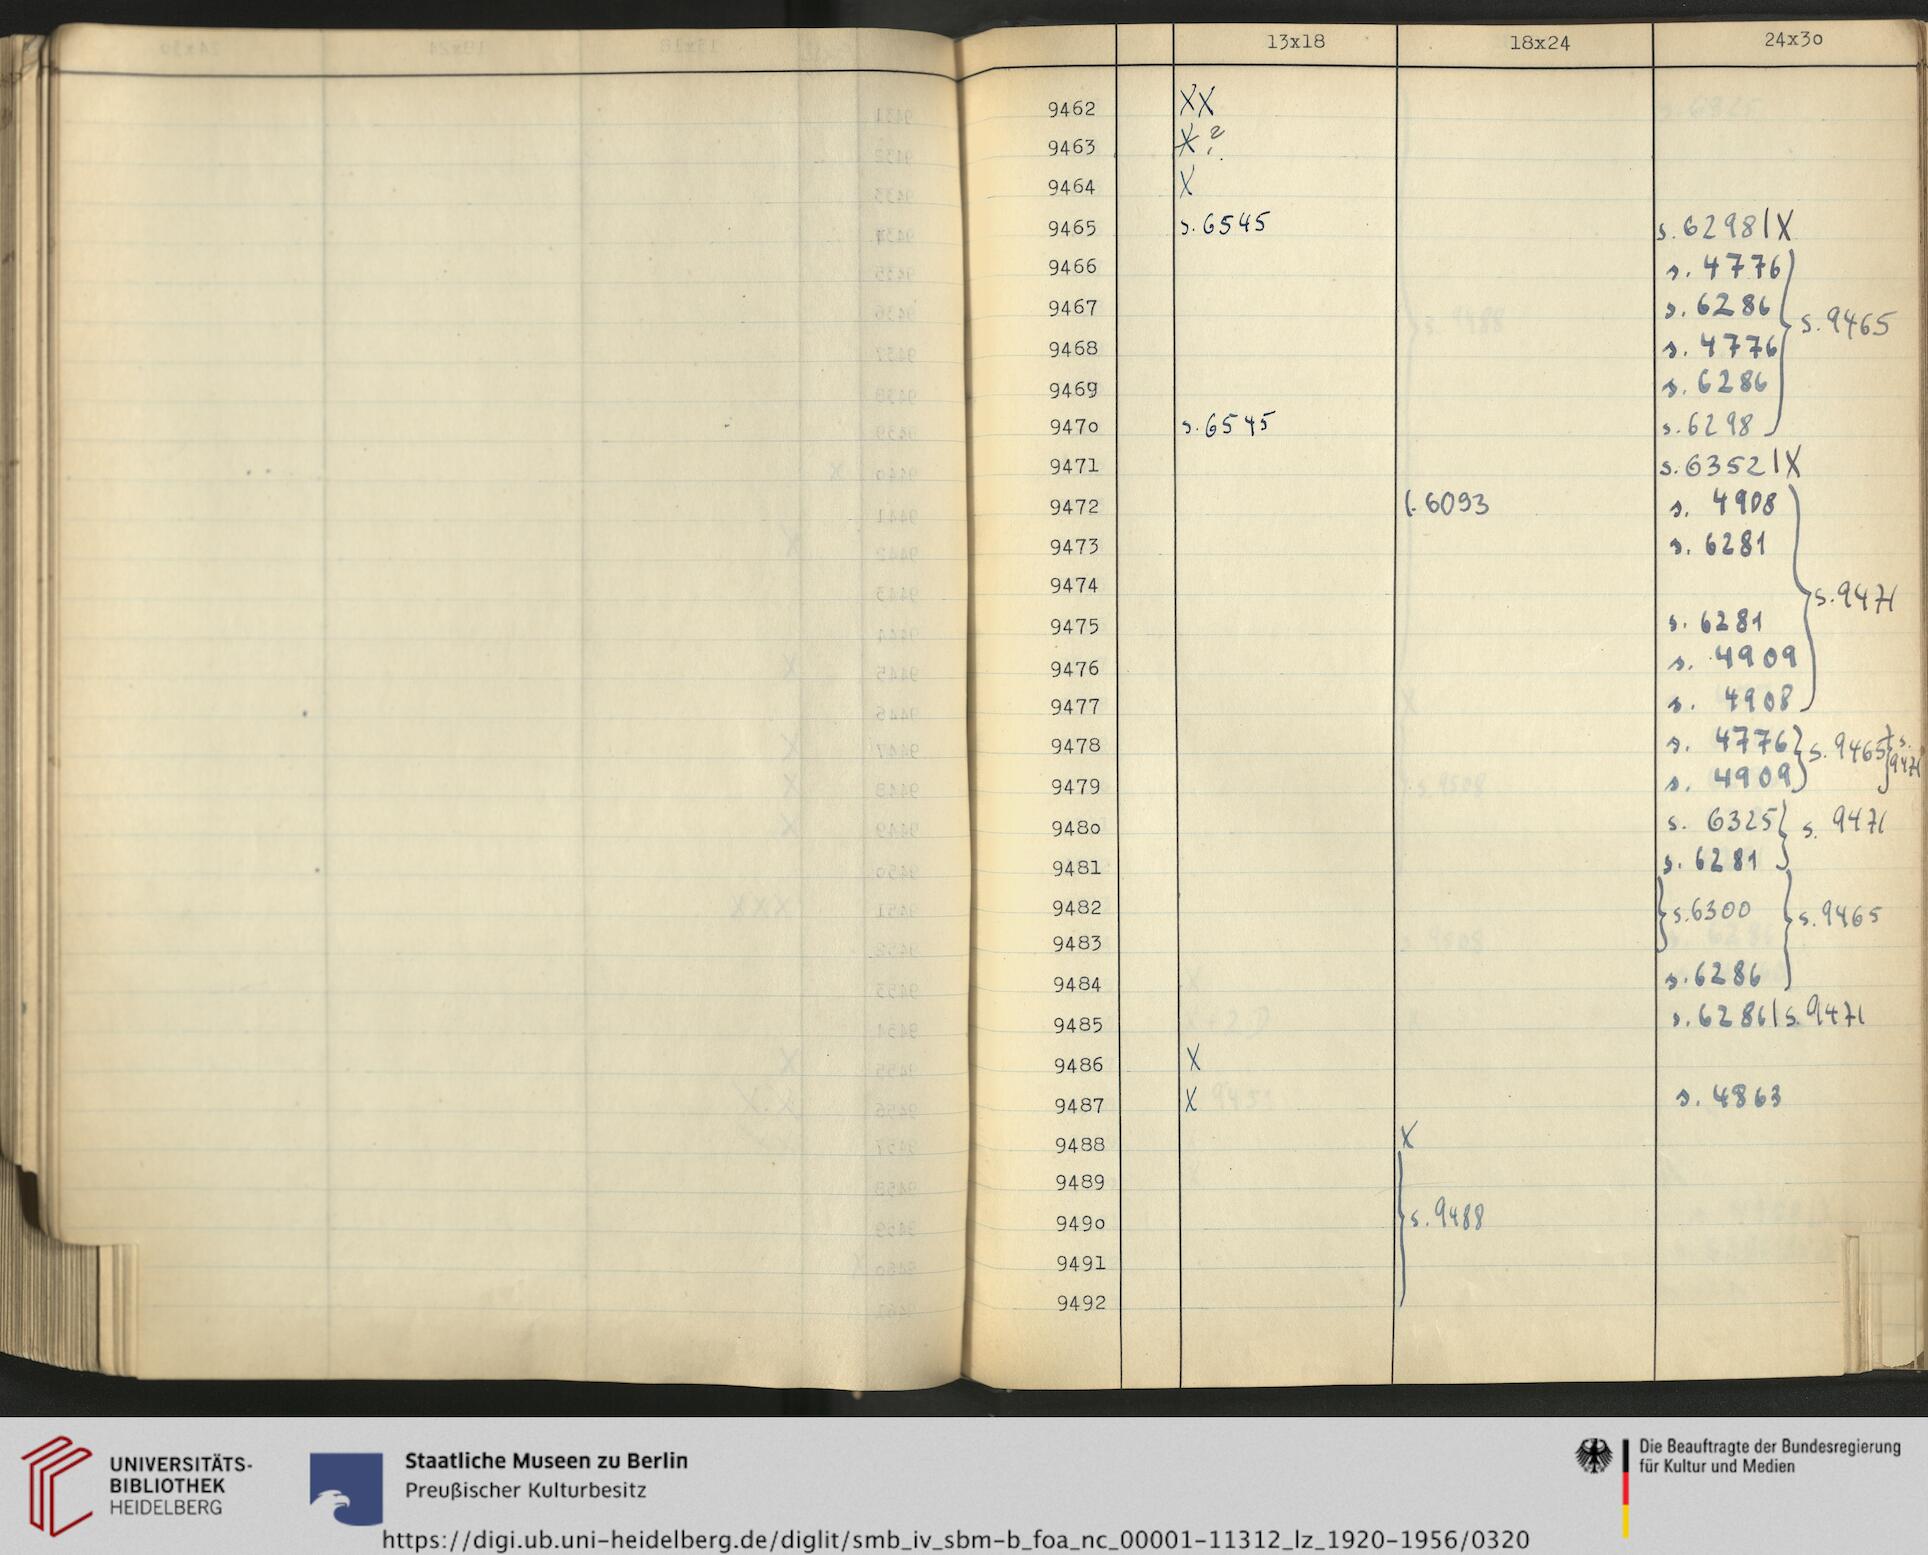 13x18 18x24 24x30
9462 XX
9463 X ?
9464 X
9465 s. 6545 s. 6298 | X
9466 s. 4776
9467 s. 6286 } s. 9465
9468 s. 4776
9469 s. 6286
9470 s. 6545 s. 6298
9471 s. 6352 | X
9472 6093 s. 4908
9473 s. 6281
9474 } s. 9471
9475 s. 6281
9476 s. 4909
9477 s. 4908
9478 s. 4776 } s. 9465 + s. 9471
9479 s. 4909
9480 s. 6325 } s. 9471
9481 s. 6281
9482 } s. 6300 } s. 9465
9483
9484 s. 6286
9485 s. 6286 | s. 9471
9486 X
9487 X s. 4863
9488 X
9489
9490 } s. 9488
9491
9492
UNIVERSITÄTS-
BIBLIOTHEK
HEIDELBERG
Staatliche Museen zu Berlin
Preußischer Kulturbesitz
Die Beauftragte der Bundesregierung
für Kultur und Medien
https://digi.ub.uni-heidelberg.de/diglit/smb_iv_sbm-b_foa_nc_00001-11312_lz_1920-1956/0320